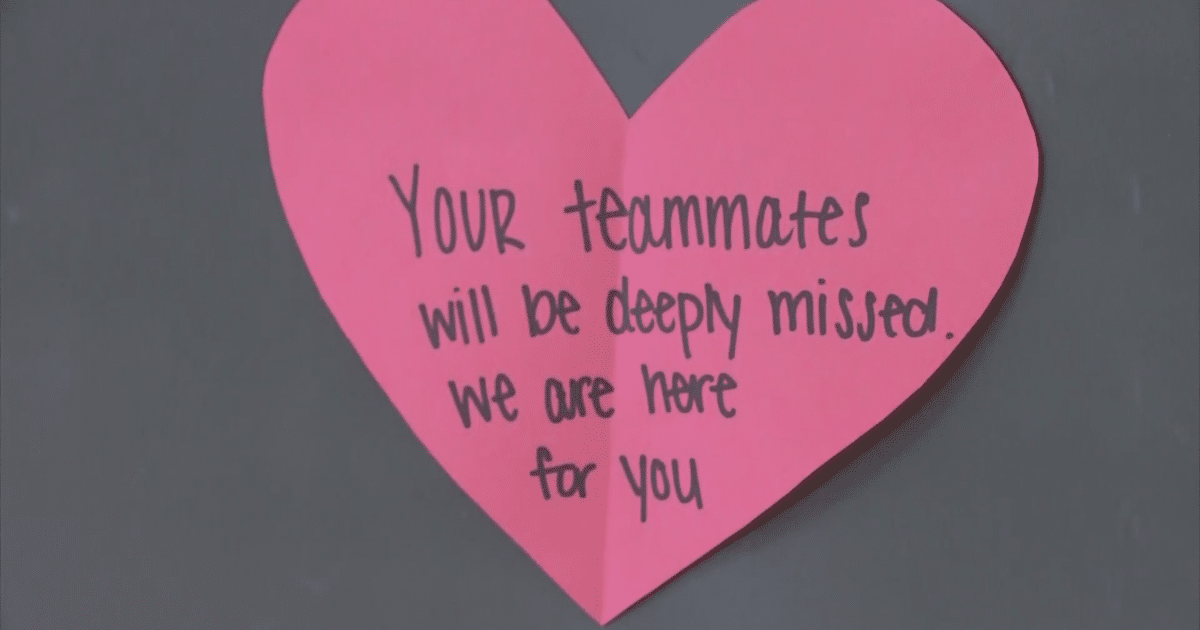 YOUR teammates
will be deeply missed.
we are here
for you